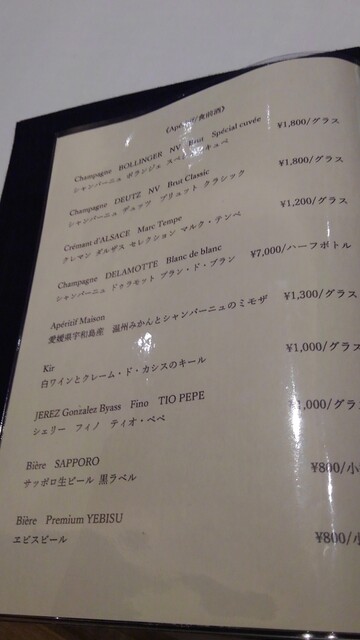 《Apéritif/食前酒》
Champagne BOLLINGER NV Brut Spécial cuvée ¥1,800/グラス
シャンパーニュ ボランジェ スペシャル キュベ
Champagne DEUTZ NV Brut Classic ¥1,800/グラス
シャンパーニュ ドゥッツ ブリュット クラシック
Crémant d'ALSACE Marc Tempe ¥1,200/グラス
クレマン ダルザス セレクション マルク・テンペ
Champagne DELAMOTTE Blanc de blanc ¥7,000/ハーフボトル
シャンパーニュ ドゥラモット ブラン・ド・ブラン
Apéritif Maison ¥1,300/グラス
愛媛県宇和島産 温州みかんとシャンパーニュのミモザ
Kir ¥1,000/グラス
白ワインとクレーム・ド・カシスのキール
JEREZ Gonzalez Byass Fino TIO PEPE ¥1,000/グラス
シェリー フィノ ティオ・ペペ
Bière SAPPORO ¥800/小
サッポロ生ビール 黒ラベル
Bière Premium YEBISU ¥800/小
ヱビスビール